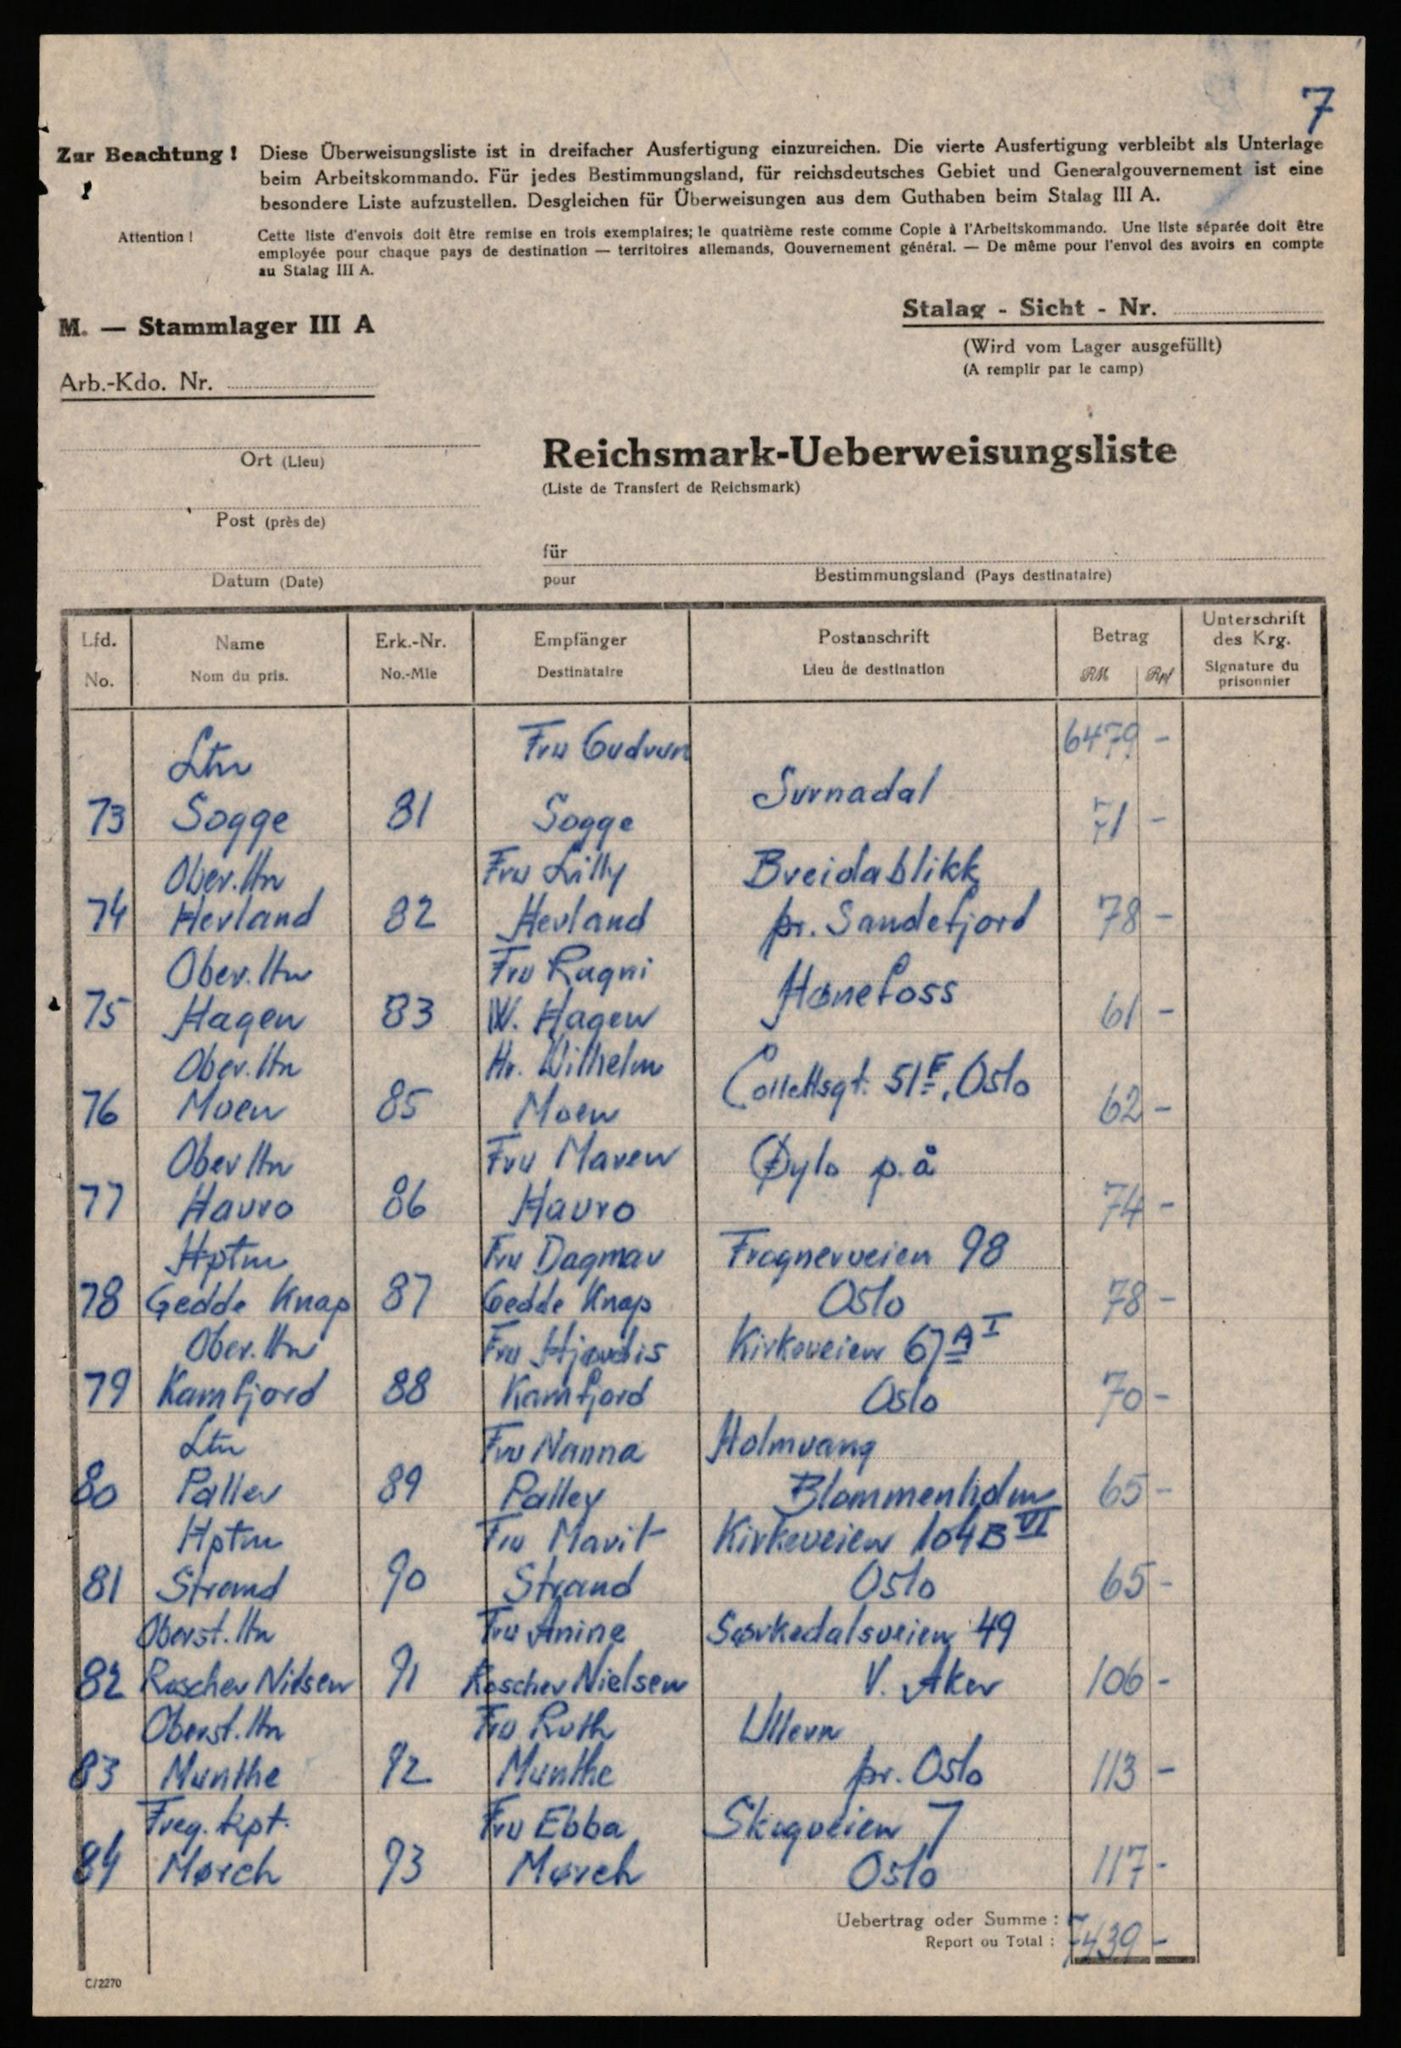 7
Zur Beachtung ! Diese Überweisungsliste ist in dreifacher Ausfertigung einzureichen. Die vierte Ausfertigung verbleibt als Unterlage
beim Arbeitskommando. Für jedes Bestimmungsland, für reichsdeutsches Gebiet und Generalgouvernement ist eine
besondere Liste aufzustellen. Desgleichen für Überweisungen aus dem Guthaben beim Stalag III A.
Attention ! Cette liste d'envois doit être remise en trois exemplaires; le quatrième reste comme Copie à l'Arbeitskommando. Une liste séparée doit être
employée pour chaque pays de destination — territoires allemands, Gouvernement général. — De même pour l'envoi des avoirs en compte
au Stalag III A.
M. — Stammlager III A
Stalag - Sicht - Nr.
(Wird vom Lager ausgefüllt)
(A remplir par le camp)
Arb.-Kdo. Nr.
Ort (Lieu)
Reichsmark-Ueberweisungsliste
(Liste de Transfert de Reichsmark)
Post (près de)
für
pour
Datum (Date)
Bestimmungsland (Pays destinataire)
Lfd. Name Erk.-Nr. Empfänger Postanschrift Betrag Unterschrift des Krg.
No. Nom du pris. No.-Mle Destinataire Lieu de destination RM Rpf Signature du prisonnier
Ltn Fru Gudrun 6479 -
73 Sogge 81 Sogge Surnadal 71 -
Ober.ltn Fru Lilly Breidablikk
74 Hevland 82 Hevland pr. Sandefjord 78 -
Ober.ltn Fru Ragni
75 Hagen 83 W. Hagen Hønefoss 61 -
Ober.ltn Hr. Wilhelm
76 Moen 85 Moen Collettsgt. 51 F, Oslo 62 -
Ober ltn Fru Maren
77 Hauro 86 Hauro Øylo p.å 74 -
Hptm Fru Dagmar Frognerveien 98
78 Gedde Knap 87 Gedde Knap Oslo 78 -
Ober.ltn Fru Hjørdis Kirkeveien 67 A I
79 Kamfjord 88 Kamfjord Oslo 70 -
Ltn Fru Nanna Holmvang
80 89 Blommenholm 65 -
Hptm Fru Marit Kirkeveien 104 B VI
81 Strand 90 Strand Oslo 65 -
Oberst.ltn Fru Anine Sørkedalsveien 49
82 Roscher Nielsen 91 Roscher Nielsen V. Aker 106 -
Oberst.ltn Fru Ruth Ullern
83 Munthe 92 Munthe pr. Oslo 113 -
Freg. kpt. Fru Ebba Skogveien 7
84 Mørch 93 Mørch Oslo 117 -
Uebertrag oder Summe :
Report ou Total : 7439 -
C/2270